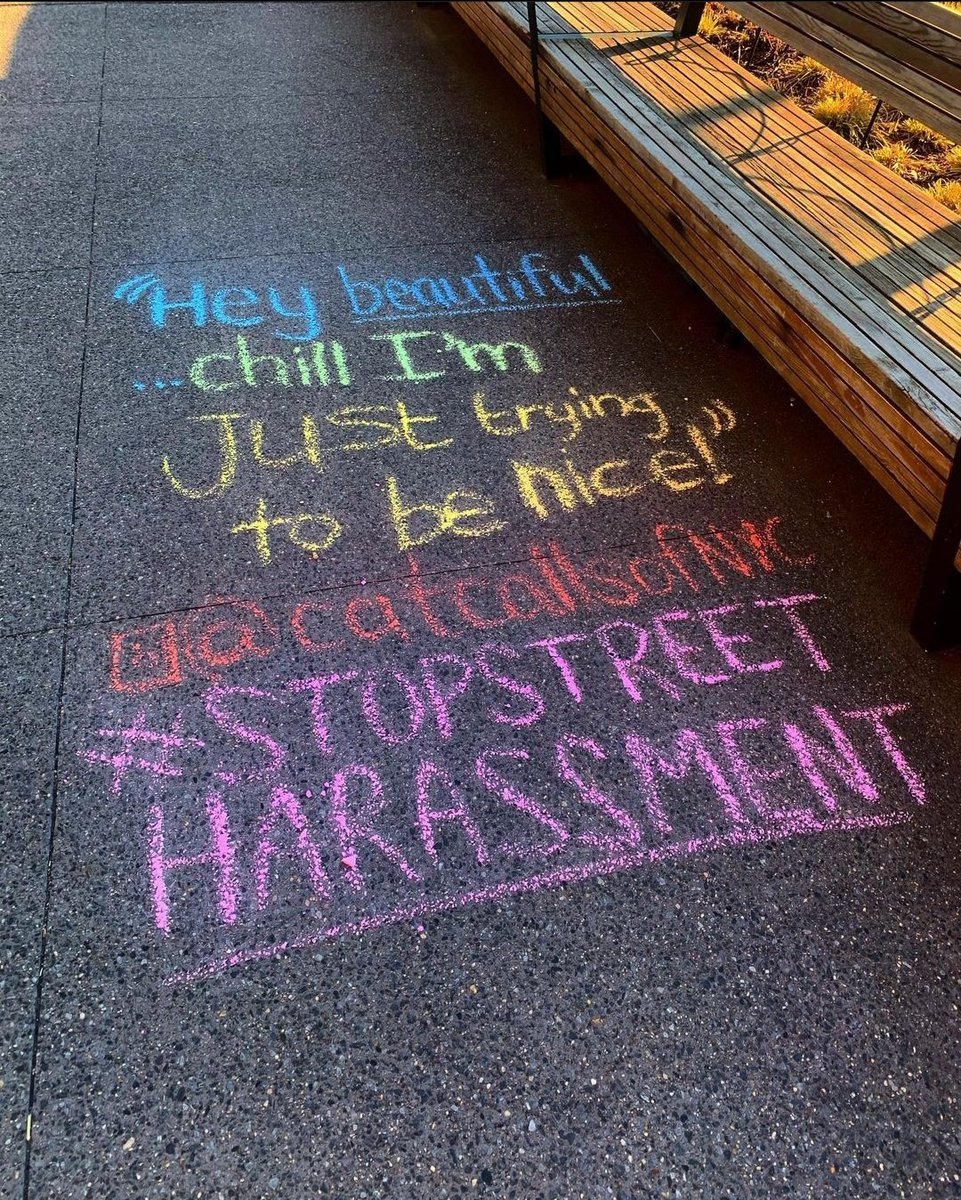 “Hey beautiful
...chill I'm
Just trying
to be nice!”
@catcallsofNYC
#STOPSTREET
HARASSMENT